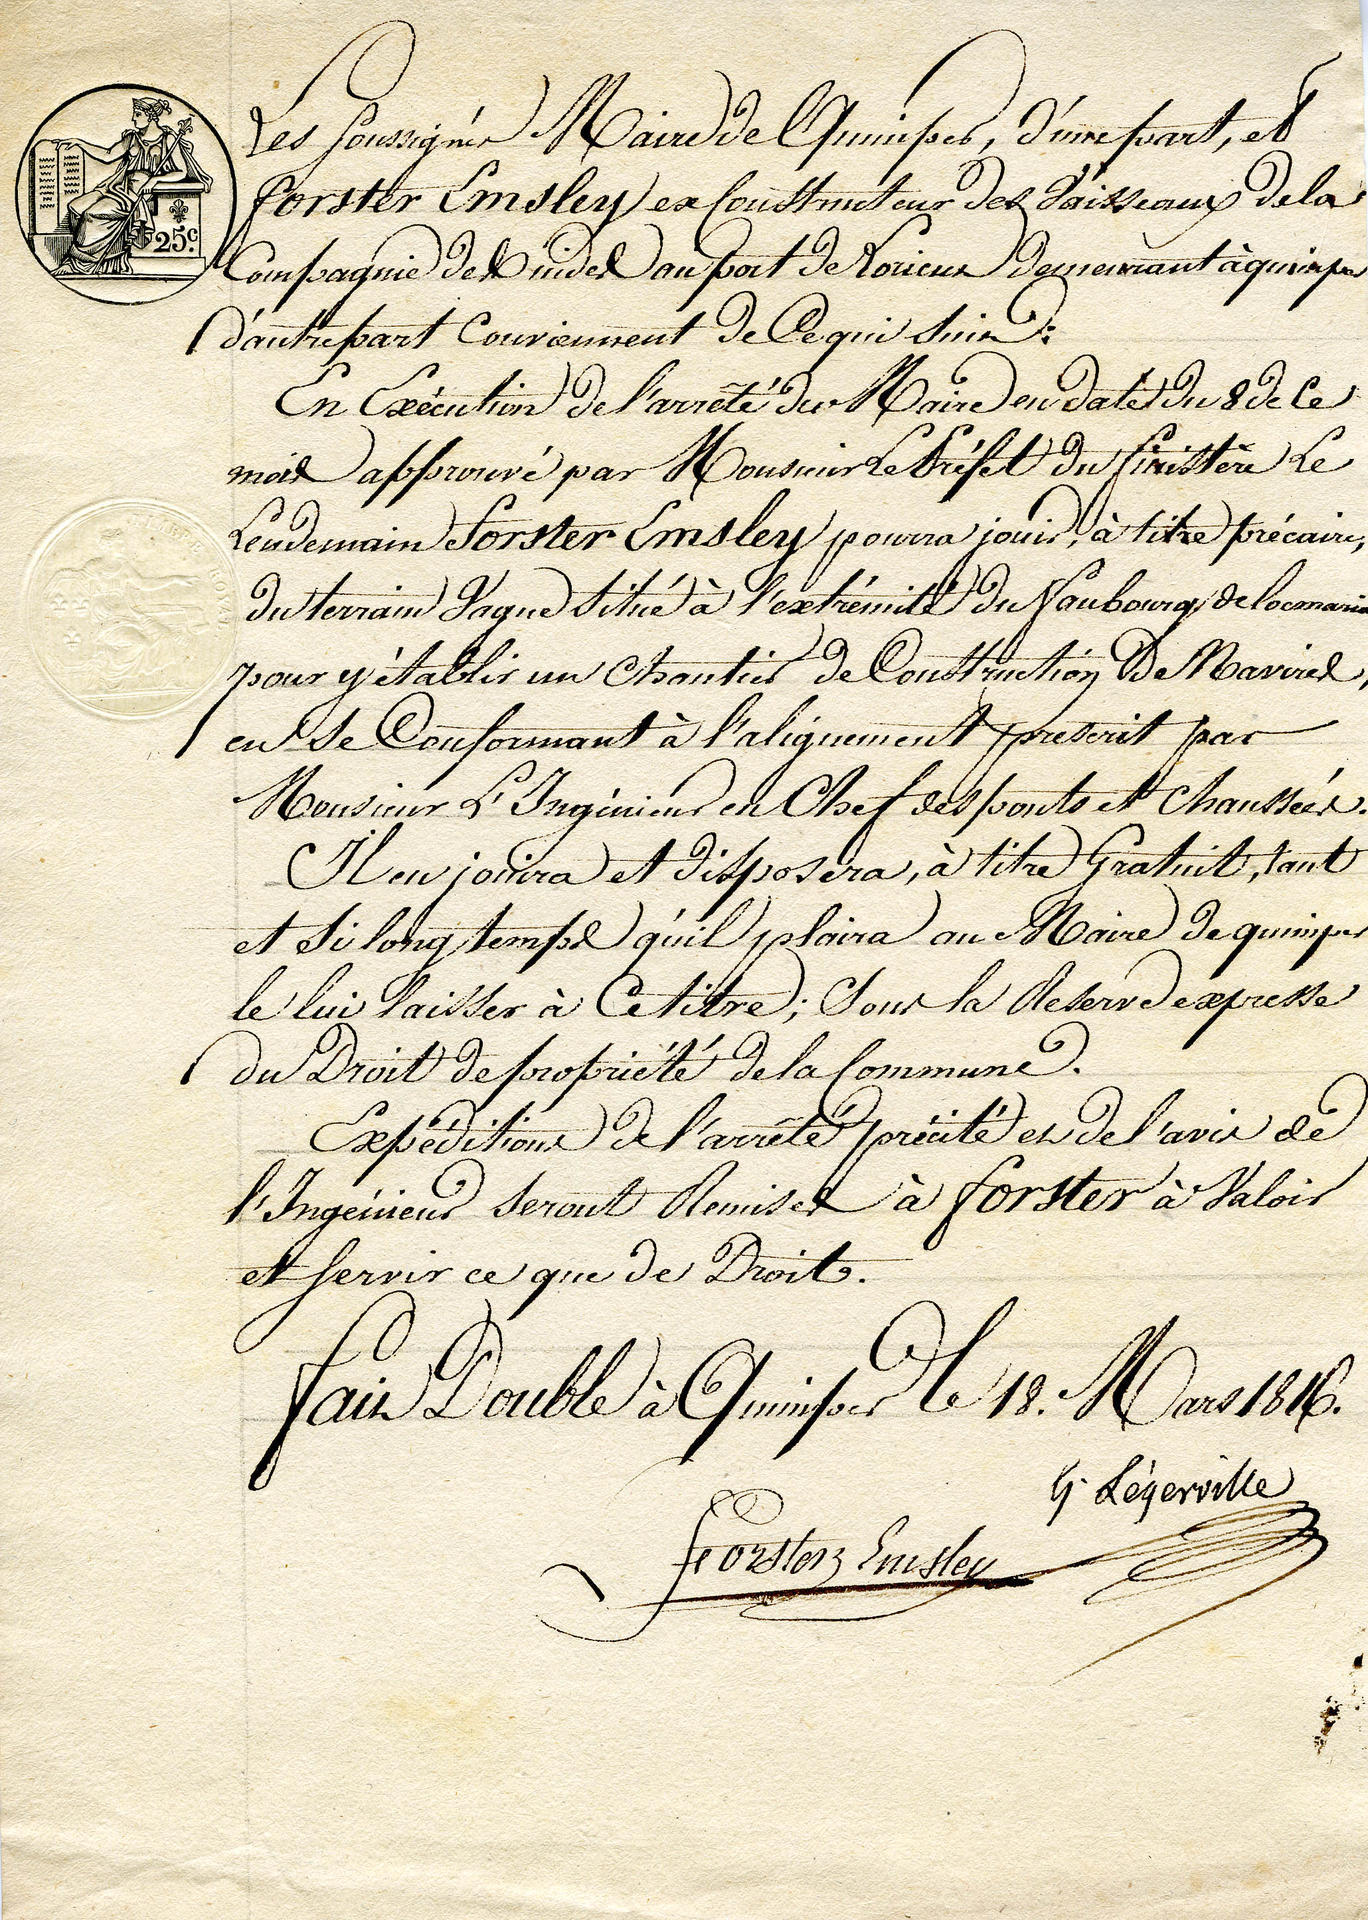 Les soussignés Maire de Quimper, d'une part, et
forster Emsley ex Constructeur des Vaisseaux de la
Compagnie des indes au port de Lorient demeurant à quimper
d'autre part Conviennent de Ce qui suit :
En Exécution de l'arrêté du Maire en date du 8 de Ce
mois approuvé par Monsieur Le Préfet du finistère Le
Lendemain Forster Emsley pourra jouir, à titre précaire,
du terrain Vague situé à l'extrémité du faubourg de locmaria
pour y établir un Chantier de Construction De Navires,
en se Conformant à l'alignement prescrit par
Monsieur L'Ingénieur en Chef des ponts et Chaussées.
Il en jouira et disposera, à titre Gratuit, tant
et si long temps qu'il plaira au Maire de quimper
le lui laisser à Ce titre ; sous la Reserve expresse
du Droit de propriété de la Commune.
Expéditions de l'arrêté précité et de l'avis de
l'Ingénieur seront Remises à forster à Valoir
et servir ce que de Droit.
fait Double à Quimper le 18. Mars 1816.
G. Légerville
forster Emsley
25c